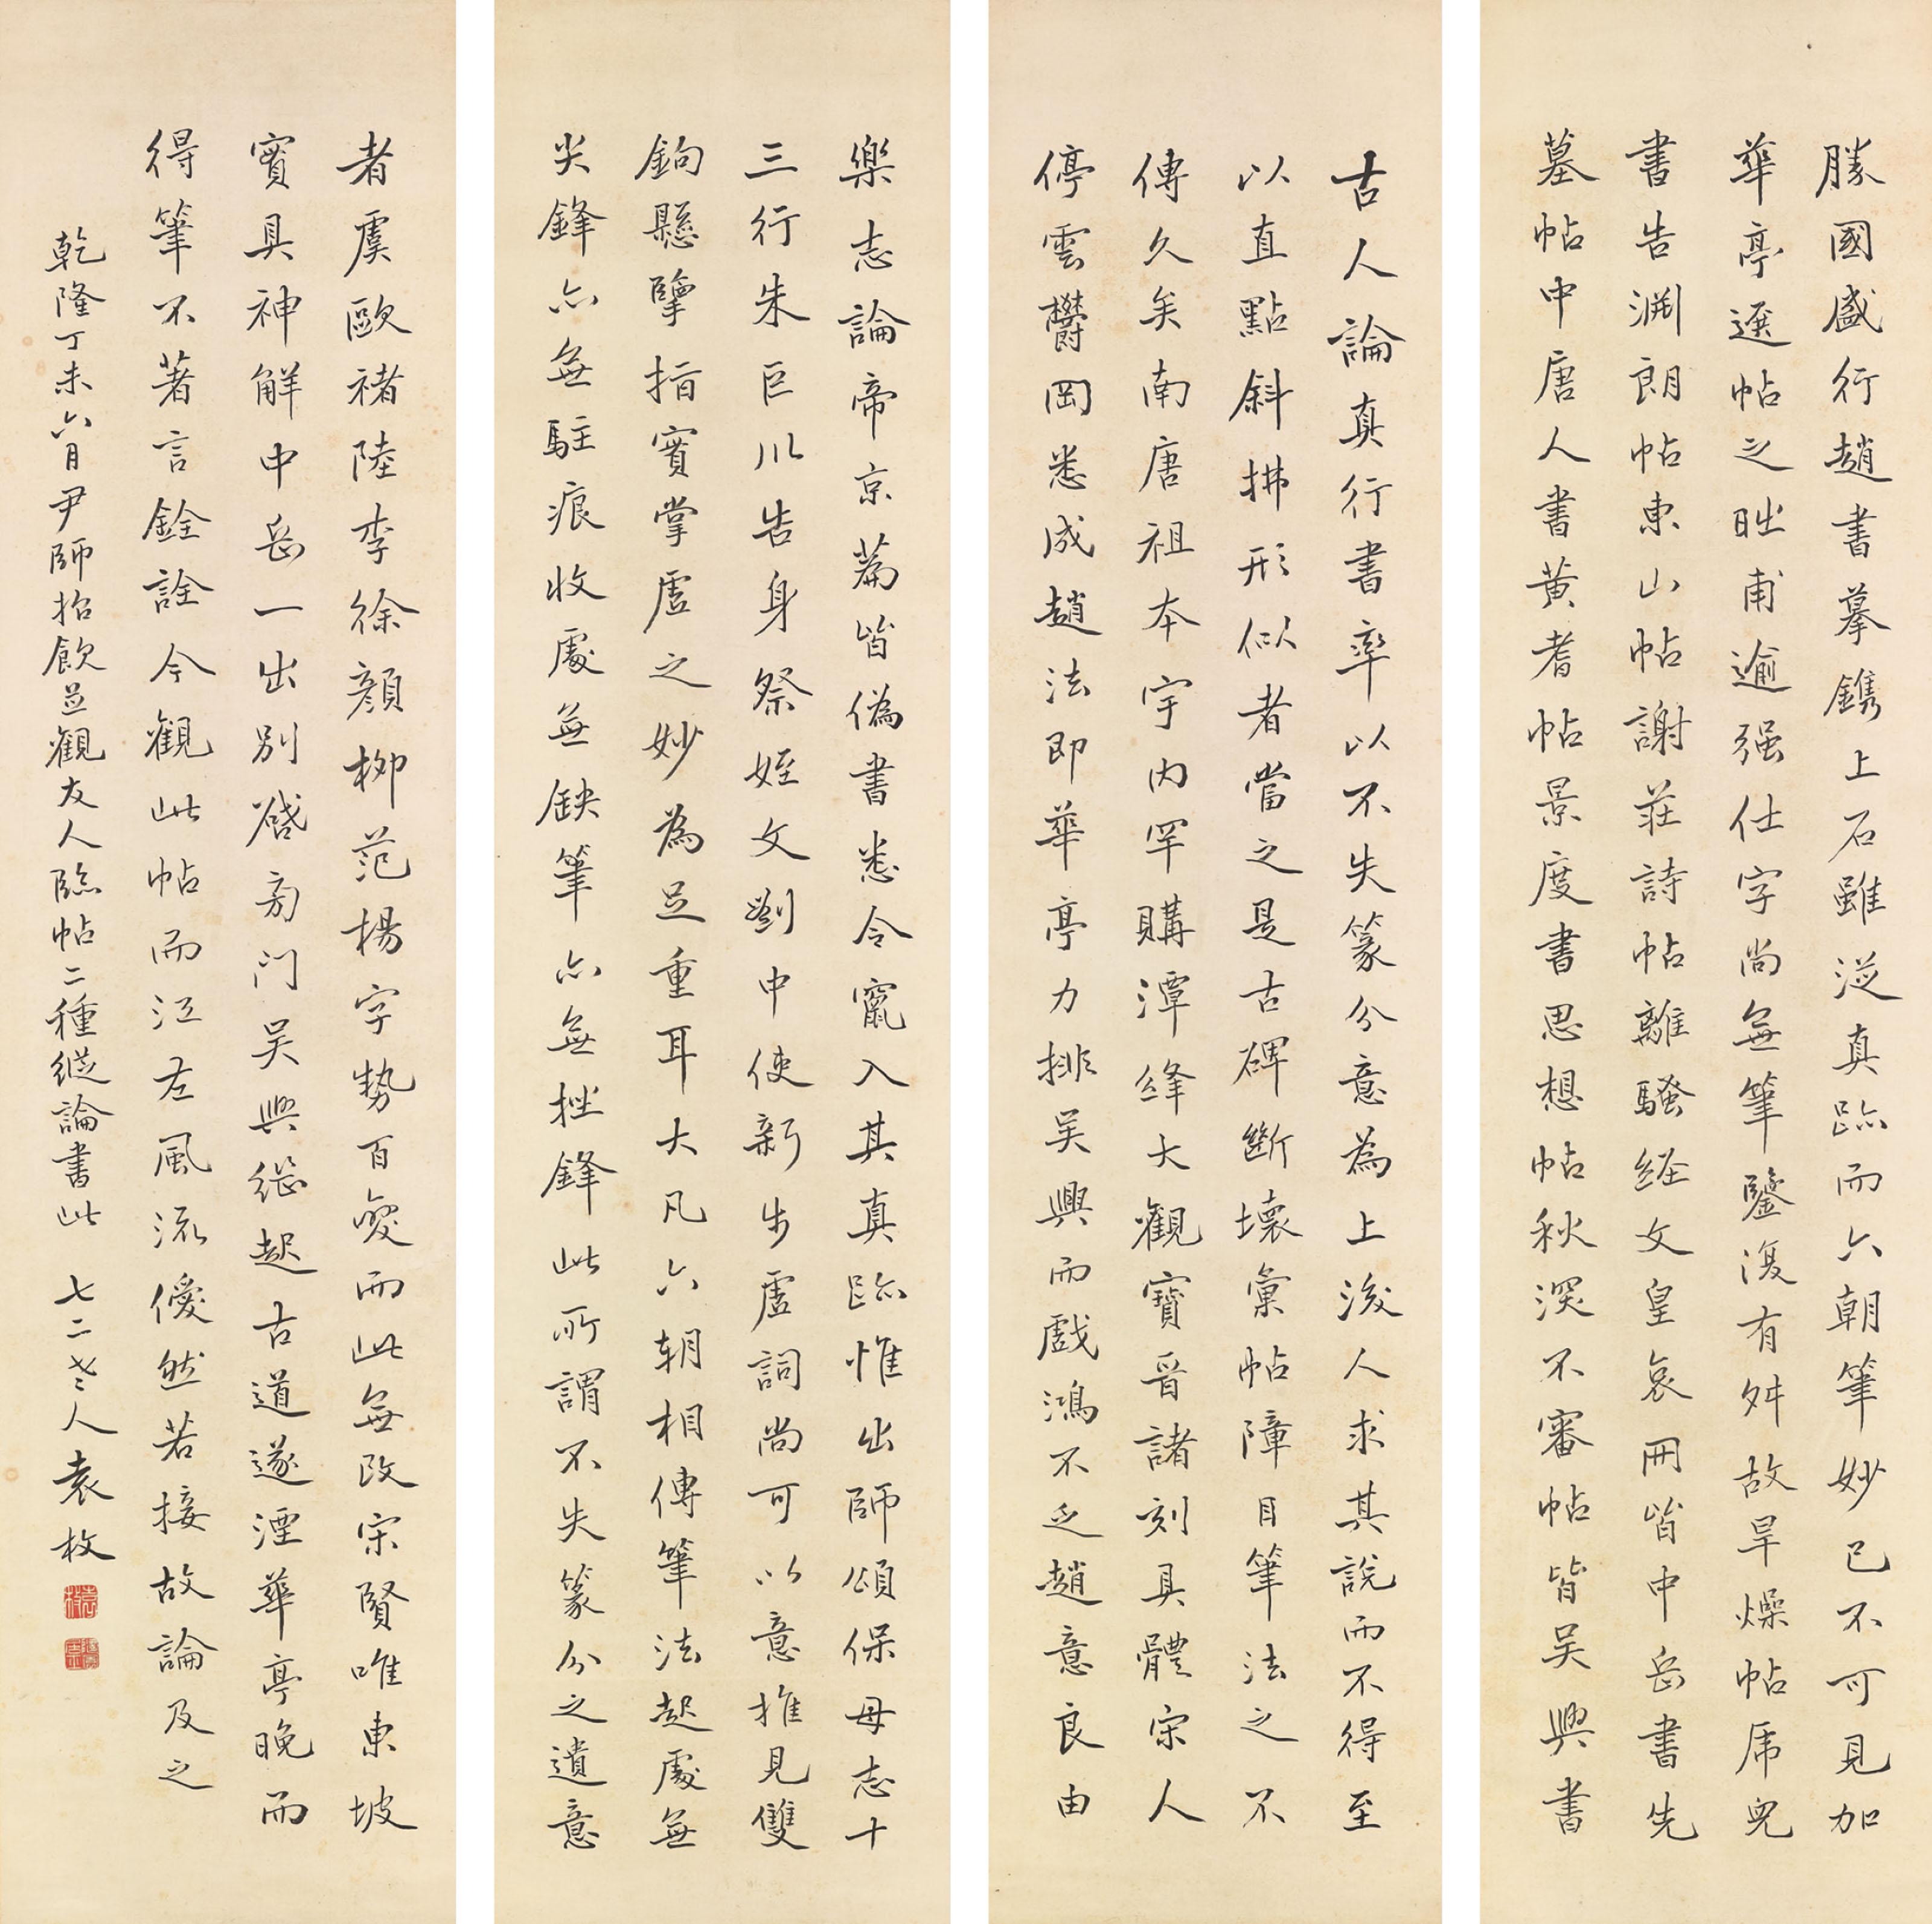 勝國盛行趙書摹鐫上石雖從真跡而六朝筆妙已不可見加
華亭選帖之昢甫逾强仕字尚無筆鑒復有舛故旱燥帖虎兒
書告淵朗帖東山帖謝莊詩帖離騷經文皇哀冊皆中岳書先
墓帖中唐人書黃耆帖景度書思想帖秋深不審帖皆吳興書
古人論真行書率以不失篆分意為上後人求其說而不得至
以直點斜拂形似者當之是古碑斷壞彙帖障目筆法之不
傳久矣南唐祖本宇內罕購潭絳大觀寶晉諸刻具體宋人
停雲鬱岡悉成趙法即華亭力排吳興而戲鴻不乏趙意良由
樂志論帝京萹皆偽書悉令竄入其真跡惟出師頌保母志十
三行朱巨川告身祭姪文劉中使新步虛詞尚可以意推見雙
鉤懸擘指實掌虛之妙為足重耳大凡六朝相傳筆法起處無
尖鋒亦無駐痕收處無缺筆亦無挫鋒此所謂不失篆分之遺意
者虞歐褚陸李徐顏柳范楊字勢百變而此無改宋賢唯東坡
實具神解中岳一出別啓旁門吳興繼起古道遂湮華亭晚而
得筆不著言銓詮今觀此帖而江左風流僾然若接故論及之
乾隆丁未六月尹師招飲並觀友人臨帖二種縱論書此 七二老人袁枚